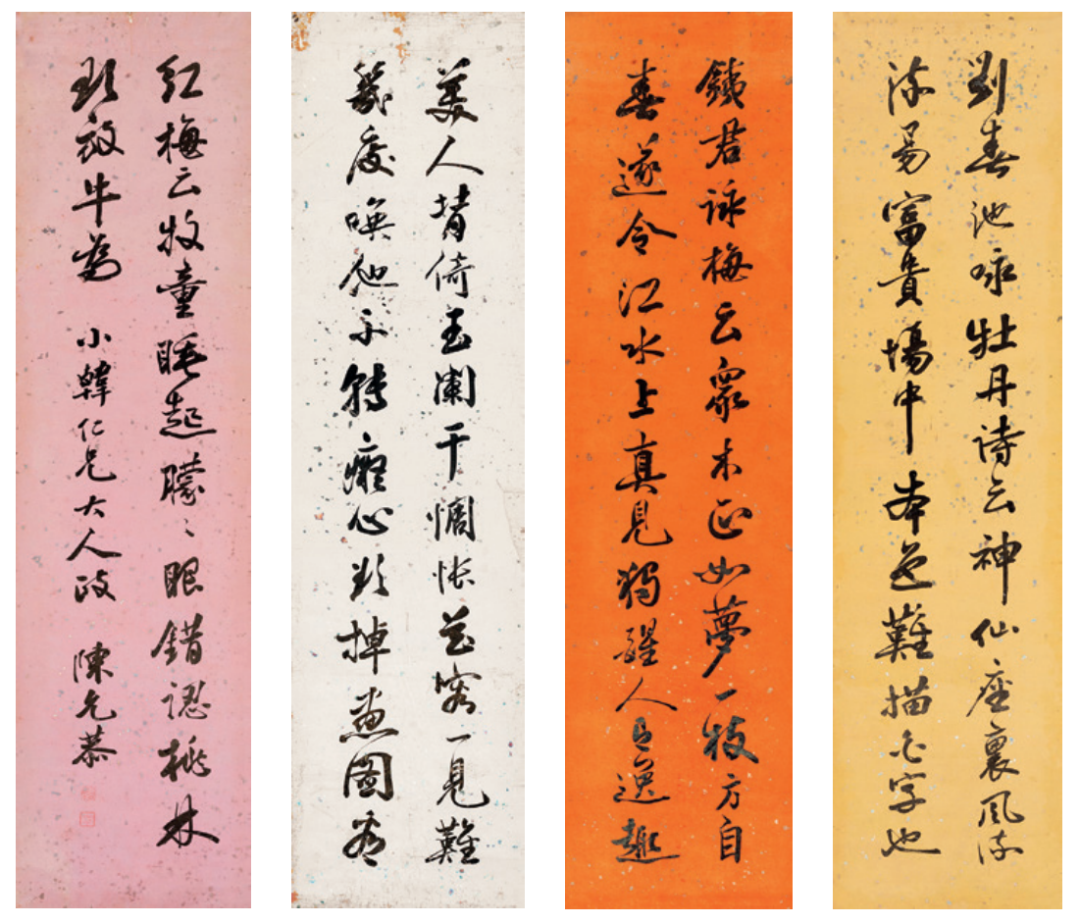 劉春池咏牡丹詩云神仙座裏風流
流易富貴場中本色難描字也
鐵君詠梅云衆木正如夢一枝方自
春遂令江水上真見獨醒人逸趣
美人背倚玉闌干惆悵花容一見難
幾度喚他不轉癡心欲掉畫圖看
紅梅云牧童睡起朦々眼錯認桃林
欲放牛為 小韓仁兄大人政 陳允恭